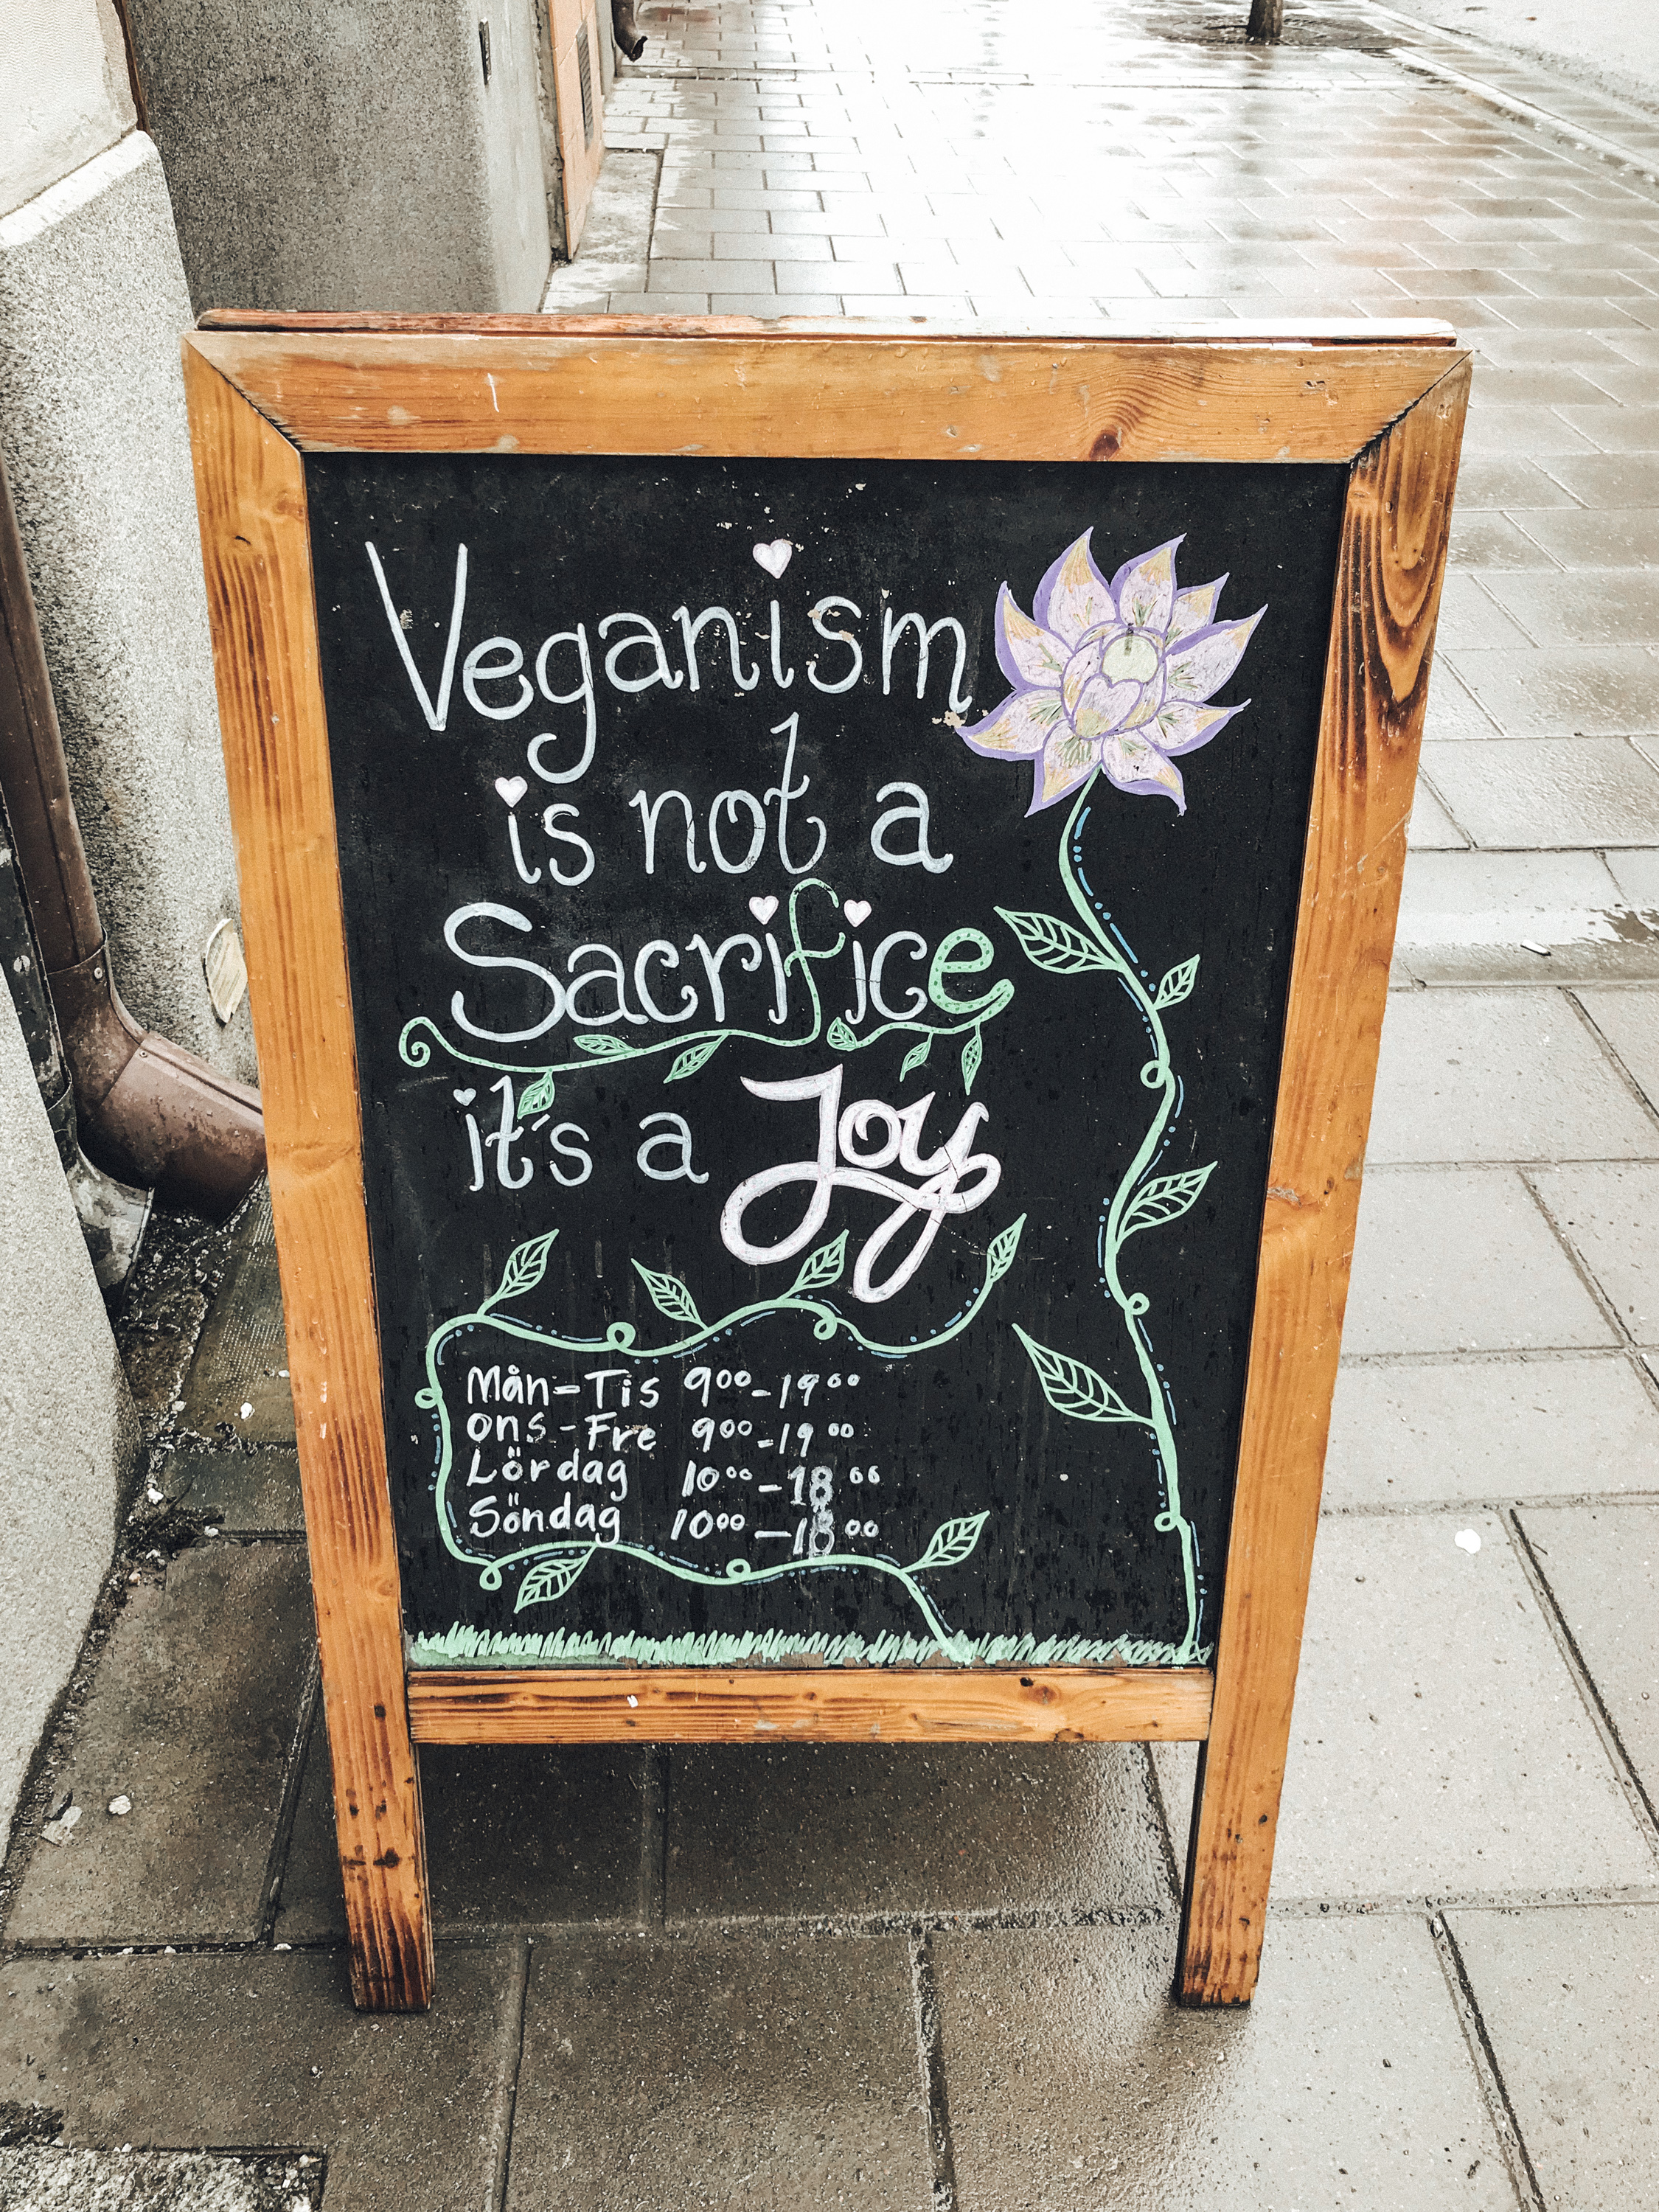 Veganism
is not a
Sacrifice
it's a Joy
Mån-Tis 9⁰⁰-19⁰⁰
ons-Fre 9⁰⁰-19⁰⁰
Lördag 10⁰⁰-18⁰⁰
Söndag 10⁰⁰-18⁰⁰